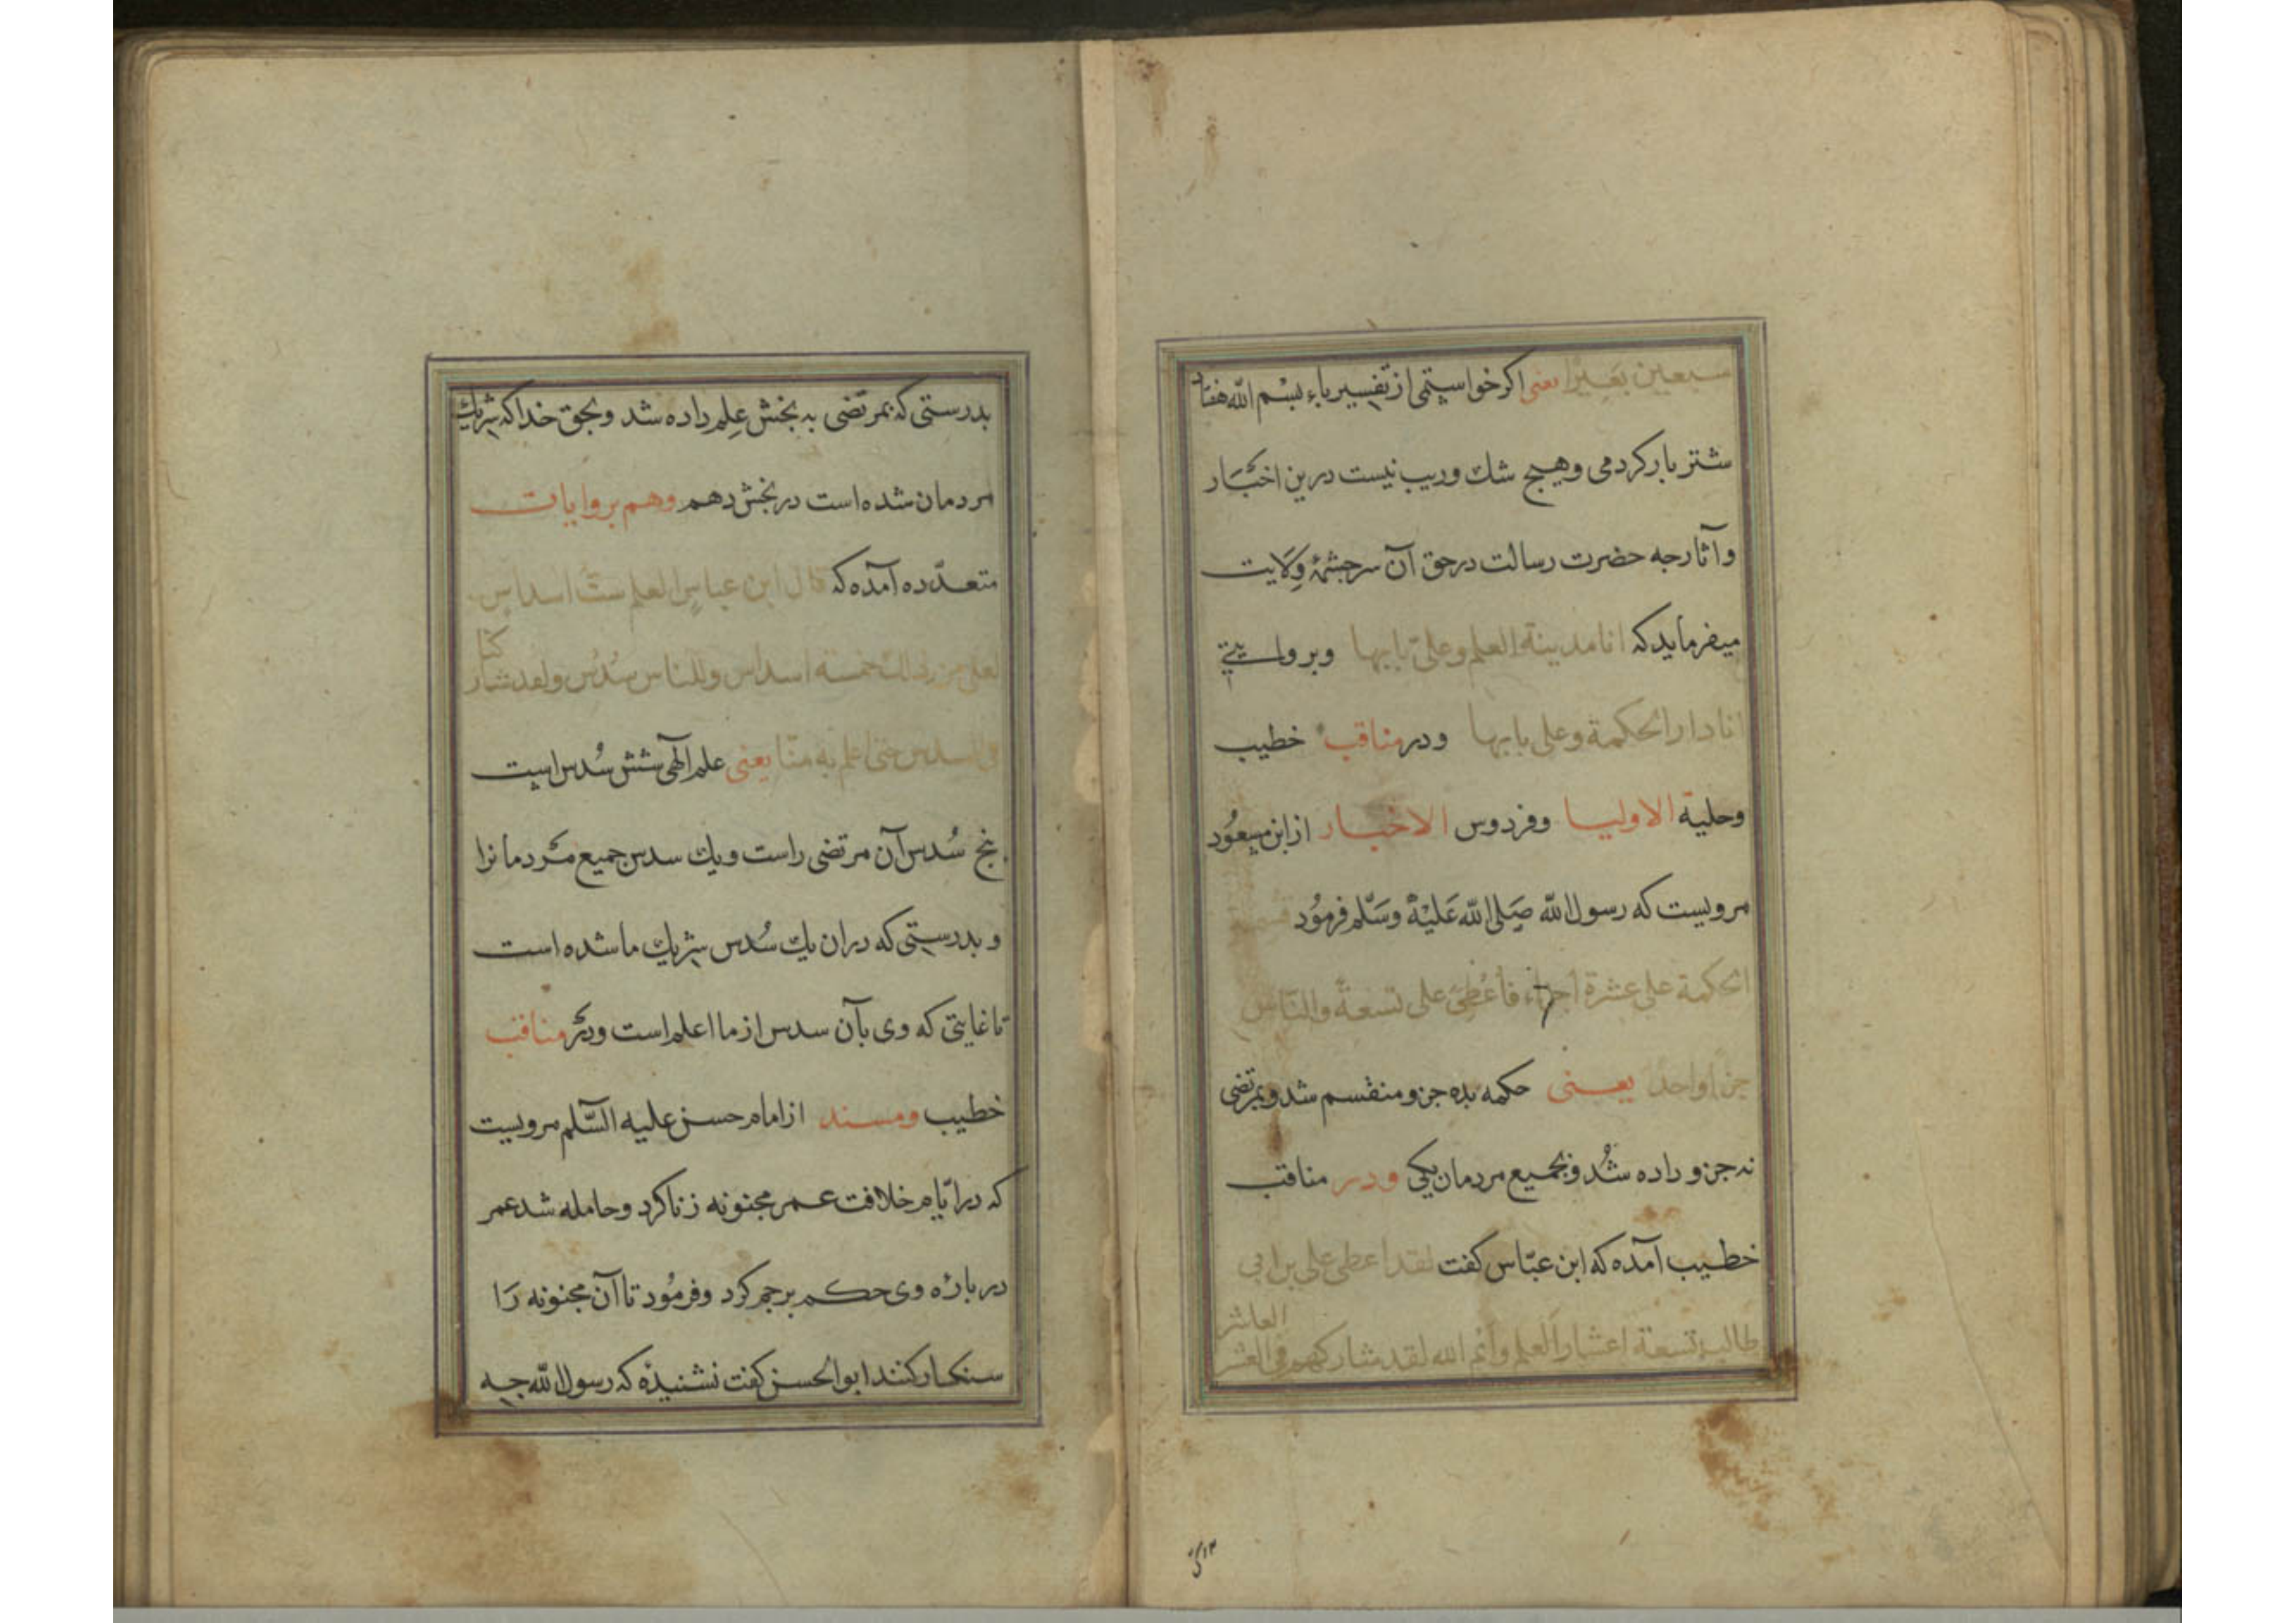 سبعین بعیرا یعنی اکر خواستمی از تفسیر باء بسم الله هفتاد
شتر بار کردمی وهیچ شك وریب نیست درین اخبار
وآثار جه حضرت رسالت در حق آن سرجشمهٔ ولایت
میفرماید که انا مدینة العلم وعلیّ بابها وبروایتی
انا دار الحکمة وعلی بابها ودر مناقب خطیب
وحلیة الاولیا وفردوس الاخبار از ابن مسعُود
مرویست که رسول الله صَلی الله عَلَیْهْ وسَلّم فرمُود
الحکمة علی عشرة اجزاء فاعُطِیَ علی تسعةً والنّاس
جزاً واحداً یعنی حکمه بده جزو منقسم شد وبمرتضی
نه جزو داده شُد وبجمیع مردمان یکی ودر مناقب
خطیب آمده که ابن عبّاس کفت لقد اعطی علی بن ابی
طالب تسعة اعشار العلم وایم الله لقد شارکهم فی العشر العاشر
بدرستی که بمرتضی به بخش عِلم داده شد وبحق خدا که شریك
مردمان شده است در بخش دهم وهم بروایات
متعدّده آمده که قال ابن عباسٍ العلم ستّ اسداسٍ
لعلی من ذالك خمسة اسداس وللناس سُدُس ولقد شارکنا
فی السدس حتی اعلم به منّا یعنی علم الٓهی شش سُدس است
پنج سُدس آن مرتضی راست ویك سدس جمیع مَردمانرا
وبدرستی که دران یك سُدس شریك ما شده است
تا غایتی که وی بآن سدس از ما اعلم است ودَر مناقب
خطیب ومسند از امام حسن علیه السّلم مرویست
که در ایّام خلافت عمر مجنونه زنا کرد وحامله شد عمر
در بارهٔ وی حکم برجم کرد وفرمُود تا آن مجنونه رَا
سنکسار کنند ابو الحسن کفت نشنیدهٔ که رسول الله جه